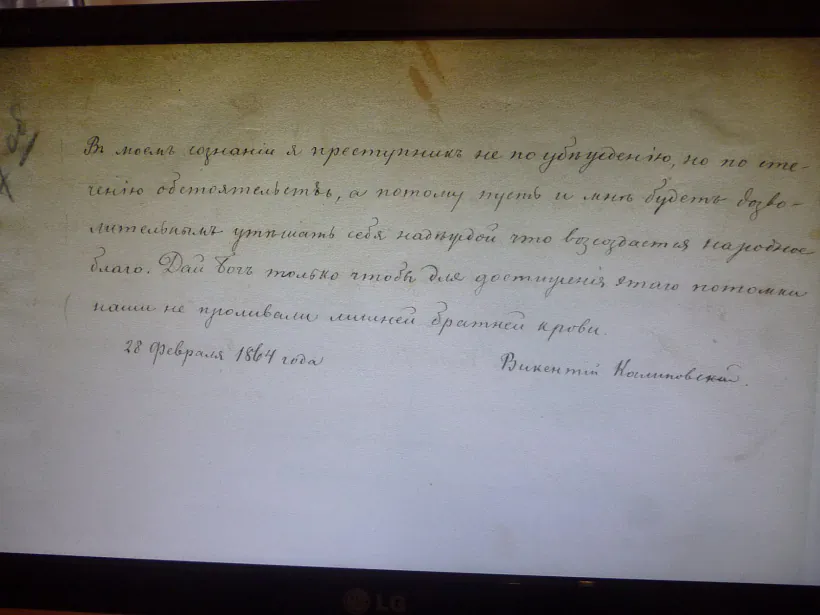 Въ моемъ сознаніи я преступникъ не по убѣжденію, но по сте-
ченію обстоятельствъ, а потому пусть и мнѣ будетъ дозво-
лительнымъ утѣшать себя надѣждой что возсоздастся народное
благо. Дай Богъ только чтобы для достиженія этаго потомки
наши не проливали лишней братней крови.
28 Февраля 1864 года
Викентій Калиновскій.
LG